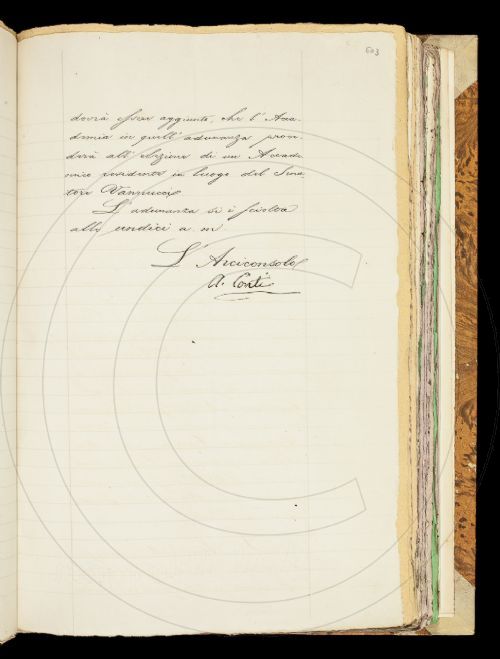 603
dovrà esser aggiunto, che l'Acca-
demia in quell'adunanza proce-
derà all'elezione di un Accade-
mico residente in luogo del Sena-
tore Vannucci.
L'adunanza si è sciolta
alle undici a. m.
L'Arciconsolo
A. Conti